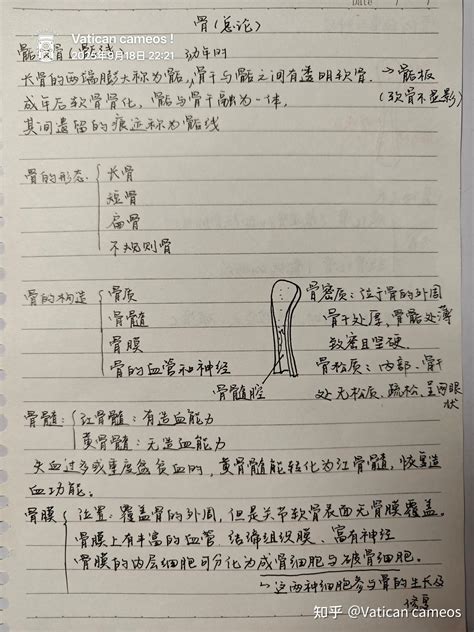 Vatican cameos!
2025年9月18日 22:21
Date
骨(总论)
骺与骨(骺线) 幼年时
长骨的两端膨大称为骺,骨干与骺之间有透明软骨.→骺板
成年后软骨骨化,骺与骨干融为一体. (软骨不显影)
其间遗留的痕迹称为骺线
骨的形态 长骨
短骨
扁骨
不规则骨
骨的构造 骨质
骨髓
骨膜
骨的血管和神经
骨髓腔
骨密质:位于骨的外周
骨干处厚,骨骺处薄
致密且坚硬.
骨松质:内部、骨干
处无松质,疏松,呈网眼
状
骨髓:红骨髓:有造血能力
黄骨髓:无造血能力
失血过多或重度贫血时,黄骨髓能转化为红骨髓,恢复造
血功能。
骨膜 位置:覆盖骨的外周,但是关节软骨表面无骨膜覆盖。
骨膜上有丰富的血管,结缔组织膜、富有神经
骨膜的内层细胞可分化为成骨细胞与破骨细胞.
→这两种细胞参与骨的生长及
修复
知乎 @Vatican cameos